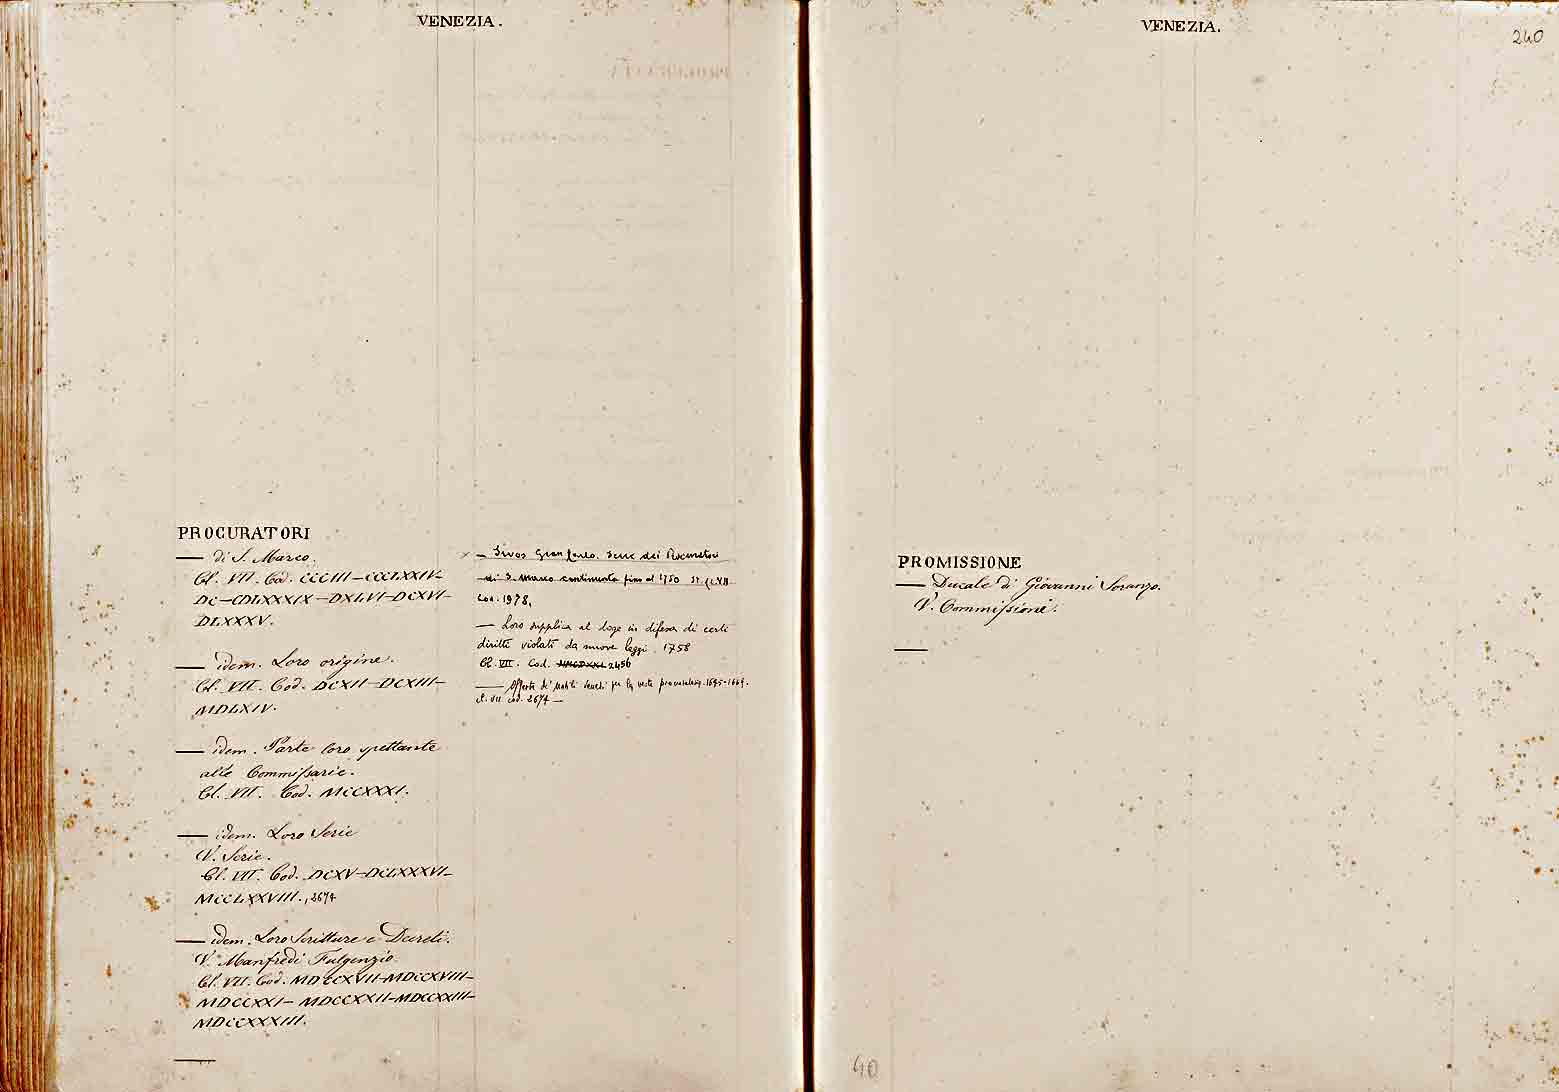 VENEZIA.
PROCURATORI
— di S. Marco.
Cl. VII. Cod. CCCIII—CCCLXXIV—
DC—CDLXXXIX—DXLVI—DCXVI—
DLXXXV.
— idem. Loro origine.
Cl. VII. Cod. DCXII—DCXIII—
MDLXIV.
— idem. Parte loro spettante
alle Commissarie.
Cl. VII. Cod. MCCXXXI.
— idem. Loro Serie
V. Serie.
Cl. VII. Cod. DCXV—DCLXXXVI—
MCCLXXVIII., 2674
— idem. Loro Scritture e Decreti.
V. Manfredi Fulgenzio.
Cl. VII. Cod. MDCCXVII—MDCCXVIII—
MDCCXXI—MDCCXXII—MDCCXXIII—
MDCCXXXIII.
— Sivos Gian Carlo. Serie dei Procuratori
di S. Marco continuata fino al 1750 Cl. VII.
Cod. 1978,
— Loro supplica al doge in difesa di certi
diritti violati da nuove leggi. 1758
Cl. VII. Cod. 2456
— Offerte di Nobili Veneti per la veste procuratoria.
Cl. VII cod. 2674 —
VENEZIA.
240
PROMISSIONE
— Ducale di Giovanni Soranzo.
V. Commissione.
40